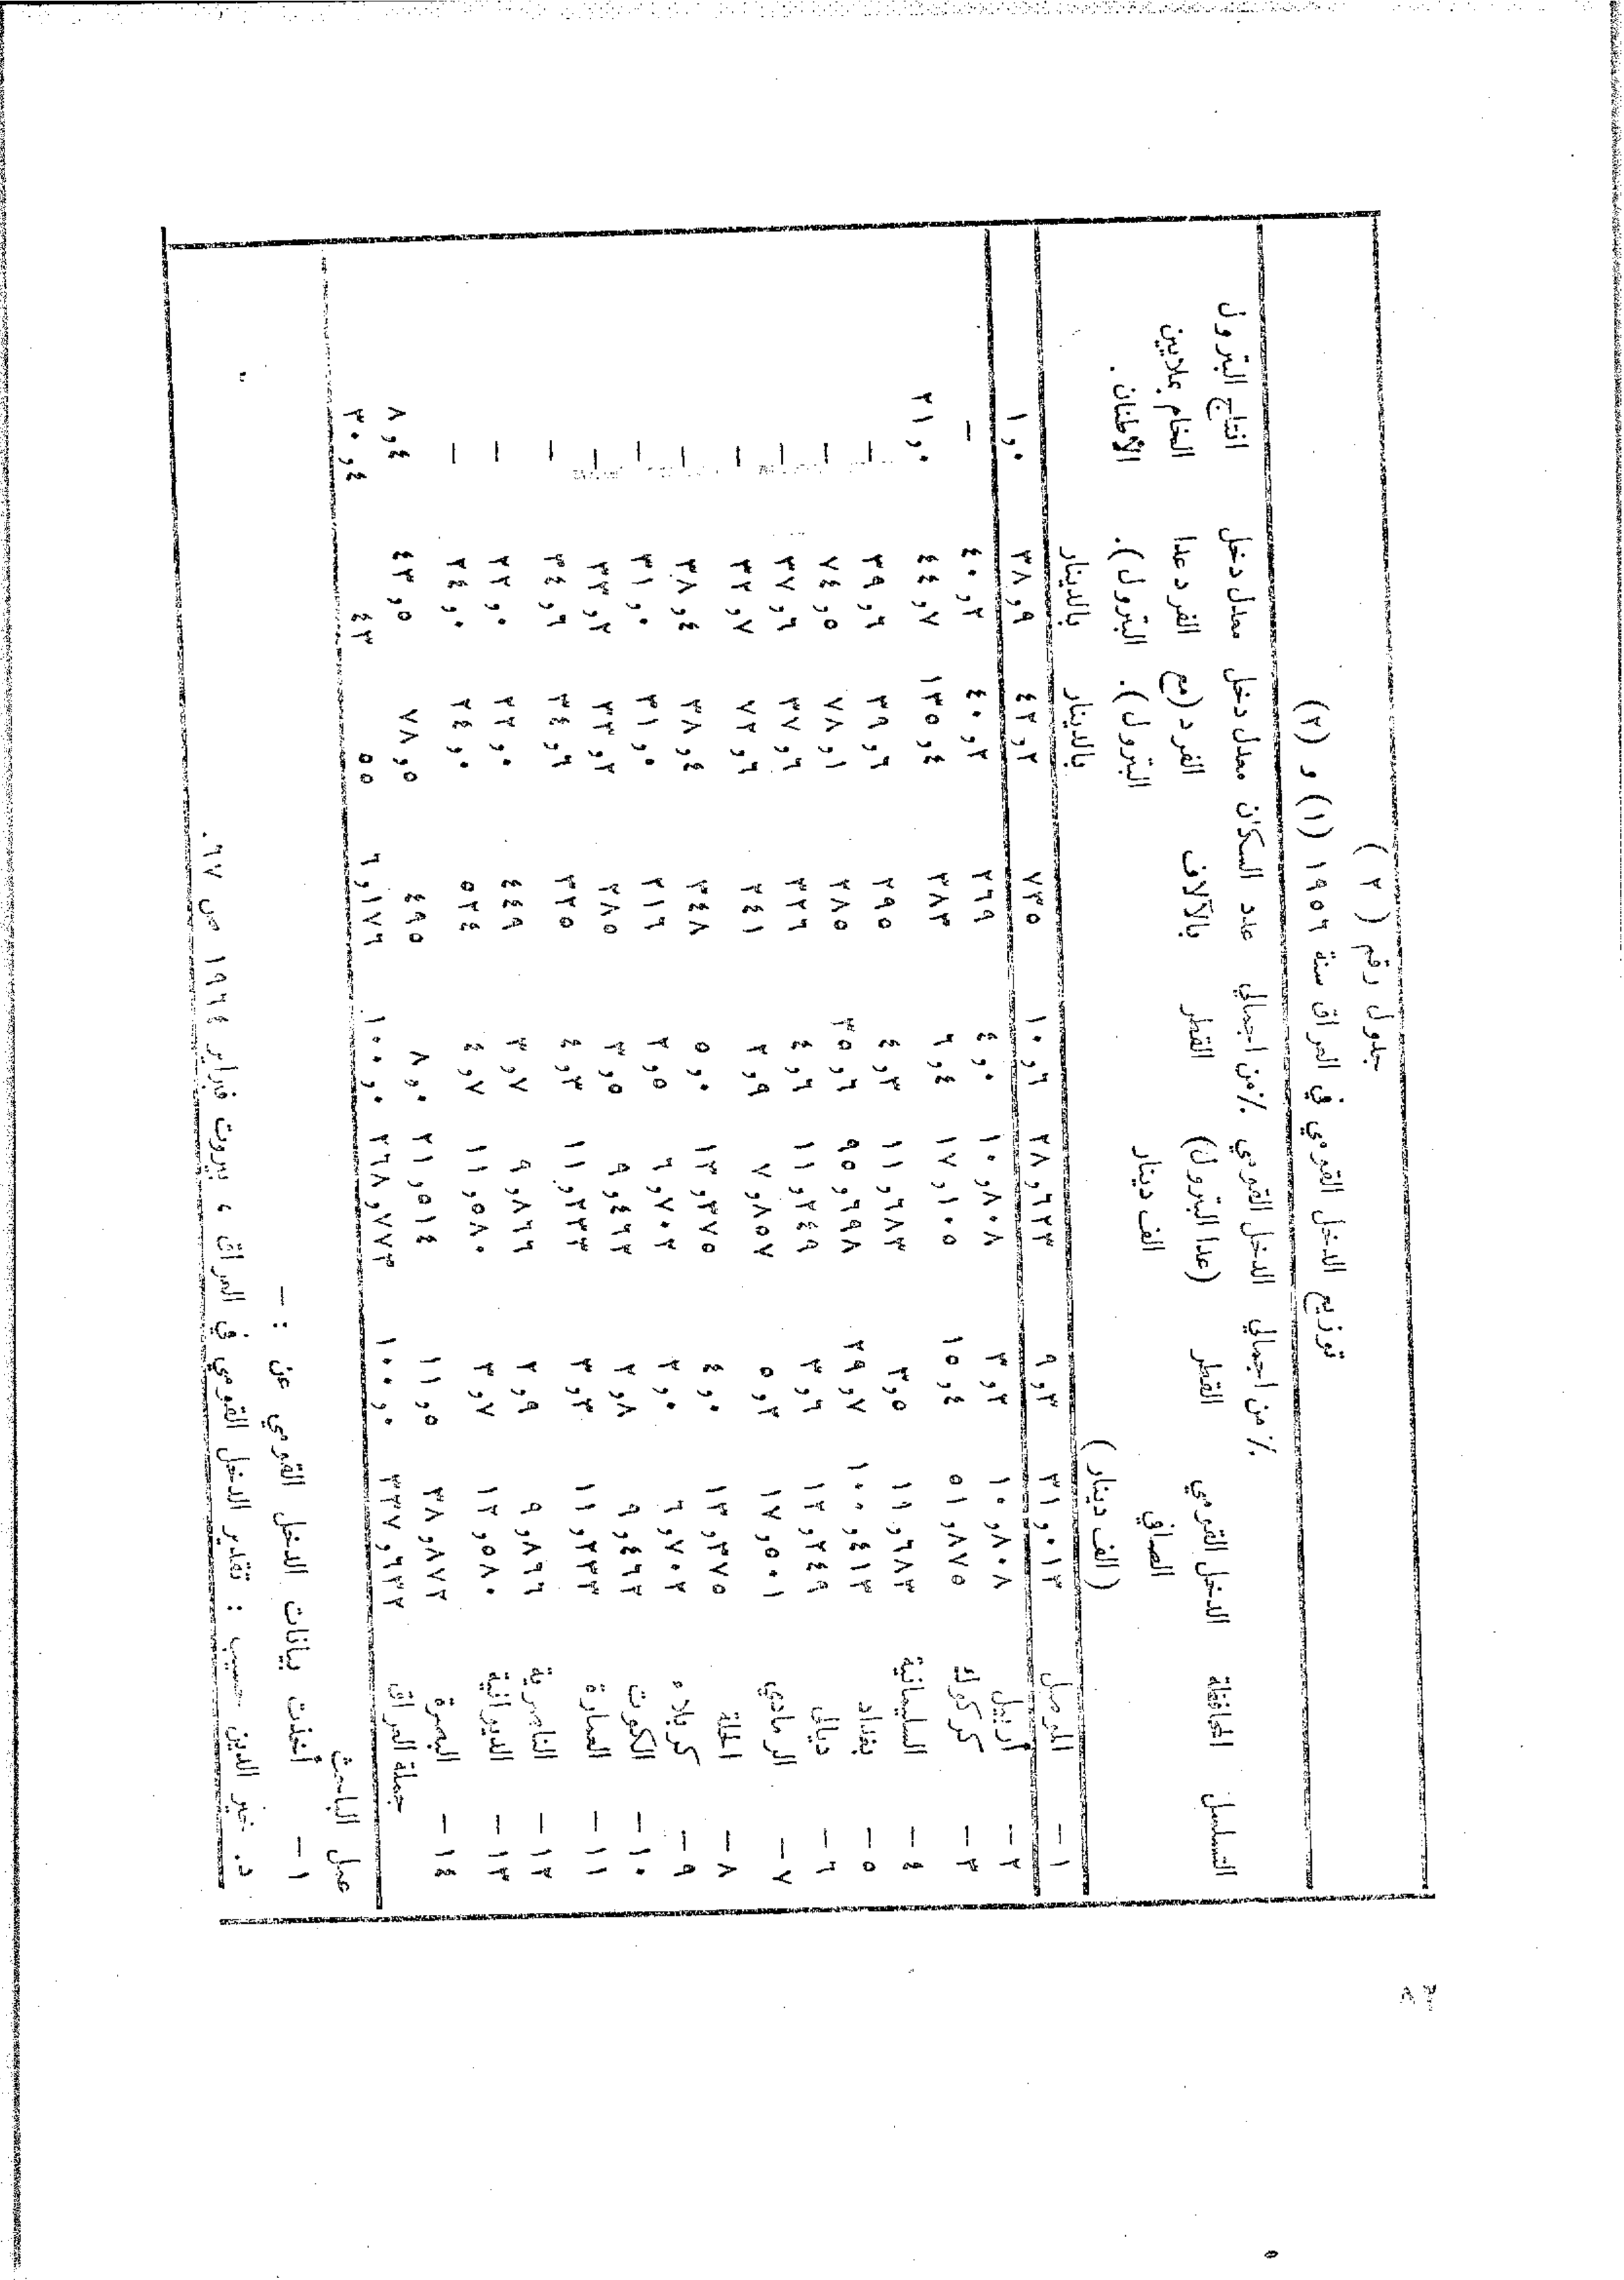 جدول رقم ( ٢ )
توزيع الدخل القومي في العراق سنة ١٩٥٦ (١) و (٢)
التسلسل المحافظة الدخل القومي الصافي (الف دينار) ٪ من اجمالي القطر الدخل القومي (عدا البترول) الف دينار ٪ من اجمالي القطر عدد السكان بالآلاف معدل دخل الفرد (مع البترول). بالدينار معدل دخل الفرد عدا البترول). بالدينار انتاج البترول الخام بملايين الأطنان.
١ – الموصل ٣١,٠١٣ ٩,٣ ٢٨,٦٣٣ ١٠,٦ ٧٣٥ ٤٢,٢ ٣٨,٩ ١,٠
٢ – أربيل ١٠,٨٠٨ ٣,٢ ١٠,٨٠٨ ٤,٠ ٢٦٩ ٤٠,٢ ٤٠,٢ –
٣ – كركوك ٥١,٨٧٥ ١٥,٤ ١٧,١٠٥ ٦,٤ ٣٨٣ ١٣٥,٤ ٤٤,٧ ٢١,٠
٤ – السليمانية ١١,٦٨٣ ٣,٥ ١١,٦٨٣ ٤,٣ ٢٩٥ ٣٩,٦ ٣٩,٦ –
٥ – بغداد ١٠٠,٤١٣ ٢٩,٧ ٩٥,٦٩٨ ٣٥,٦ ٢٨٥ ٧٨,١ ٧٤,٥ –
٦ – ديالى ١٢,٢٤٩ ٣,٦ ١١,٢٤٩ ٤,٦ ٣٢٦ ٣٧,٦ ٣٧,٦ –
٧ – الرمادي ١٧,٥٠١ ٥,٢ ٧,٨٥٧ ٢,٩ ٢٤١ ٧٢,٦ ٣٢,٧ –
٨ – الحلة ١٣,٣٧٥ ٤,٠ ١٣,٣٧٥ ٥,٠ ٣٤٨ ٣٨,٤ ٣٨,٤ –
٩ – كربلاء ٦,٧٠٢ ٢,٠ ٦,٧٠٢ ٢,٥ ٢١٦ ٣١,٠ ٣١,٠ –
١٠ – الكوت ٩,٤٦٣ ٢,٨ ٩,٤٦٣ ٣,٥ ٢٨٥ ٣٣,٢ ٣٣,٢ –
١١ – العمارة ١١,٣٣٣ ٣,٣ ١١,٣٣٣ ٤,٢ ٣٢٥ ٣٤,٩ ٣٤,٩ –
١٢ – الناصرية ٩,٨٦٦ ٢,٩ ٩,٨٦٦ ٣,٧ ٤٤٩ ٢٢,٠ ٢٢,٠ –
١٣ – الديوانية ١٢,٥٨٠ ٣,٧ ١١,٥٨٠ ٤,٧ ٥٢٤ ٢٤,٠ ٢٤,٠ –
١٤ – البصرة ٣٨,٨٧٢ ١١,٥ ٢١,٥١٤ ٨,٠ ٤٩٥ ٧٨,٥ ٤٣,٥ ٨,٤
جملة العراق ٣٣٧,٦٣٢ ١٠٠,٠ ٢٦٨,٧٧٣ ١٠٠,٠ ٦,١٧٦ ٥٥ ٤٣ ٣٠,٤
عمل الباحث
١ – أخذت بيانات الدخل القومي عن : –
د. خير الدين حسيب : تقدير الدخل القومي في العراق ، بيروت فبراير ١٩٦٤ ص ٦٧.
٨٢